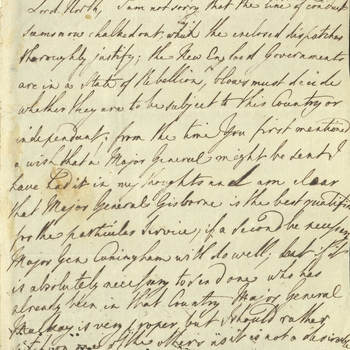 Lord North, I am not sorry that the line of conduct
seems now chalked out, which the enclosed dispatches
thoroughly justify; the New England Governments
are in a State of Rebellion, blows must decide
whether they are to be subject to this Country or
independant. from the time You first mentioned
a wish that a Major General might be sent I
have had it in my thoughts and am clear
that Major General Gisborne is the best qualified
for the particular service; if a second be necessary
Major Gen Cuningham will do well; but if it
is absolutely necessary to send one who has
already been in that Country Major General
is very proper, but I should rather
one of the others as it is not a desirable